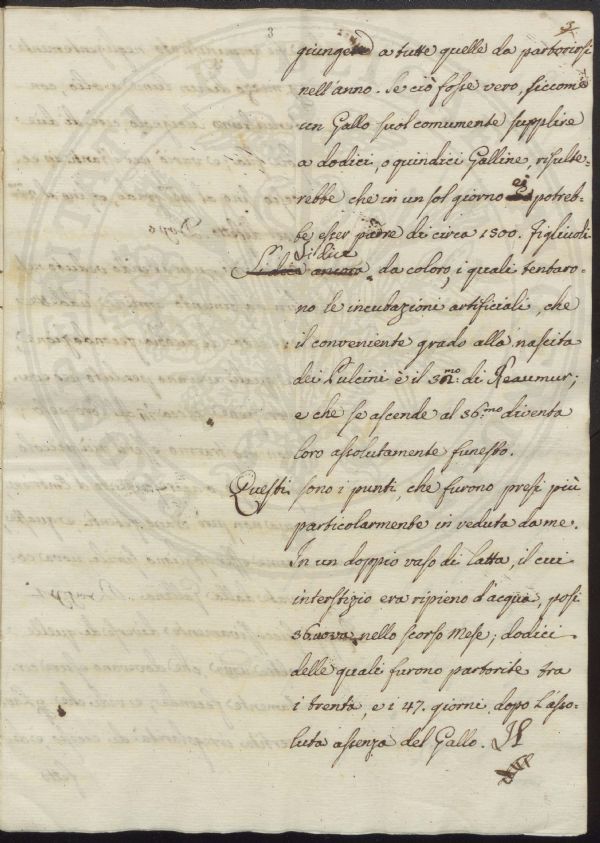 3
3
giungere a tutte quelle da partorirsi
nell'anno. Se ciò fosse vero, siccome
un Gallo suol comunemente supplire
a dodici, o quindici Galline, risulte=
rebbe che in un sol giorno ei potreb=
be esser padre di circa 1300. Figliuoli
Si dice
da coloro, i quali tentaro=
no le incubazioni artificiali, che
il conveniente grado alla nascita
dei Pulcini è il mo: di Reaumur;
e che se ascende al 36.mo diventa
loro assolutamente funesto.
Questi sono i punti, che furono presi più
particolarmente in veduta da me.
In un doppio vaso di latta, il cui
interstizio era ripieno d'acqua, posi
36 uova nello scorso Mese; dodici
delle quali furono partorite tra
i trenta, e i 47. giorni dopo l'asso=
luta assenza del Gallo. Il